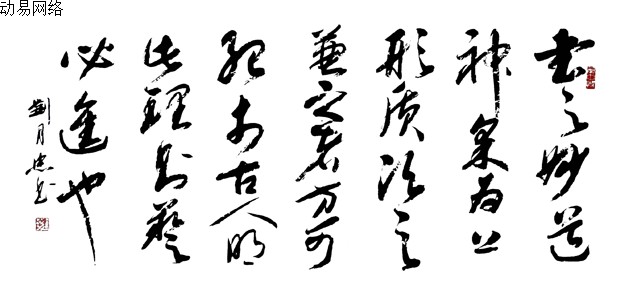 动易网络
书之妙道
神采为上
形质次之
兼之者方可
绍于古人明
此理则艺
必進也
劉月忠书